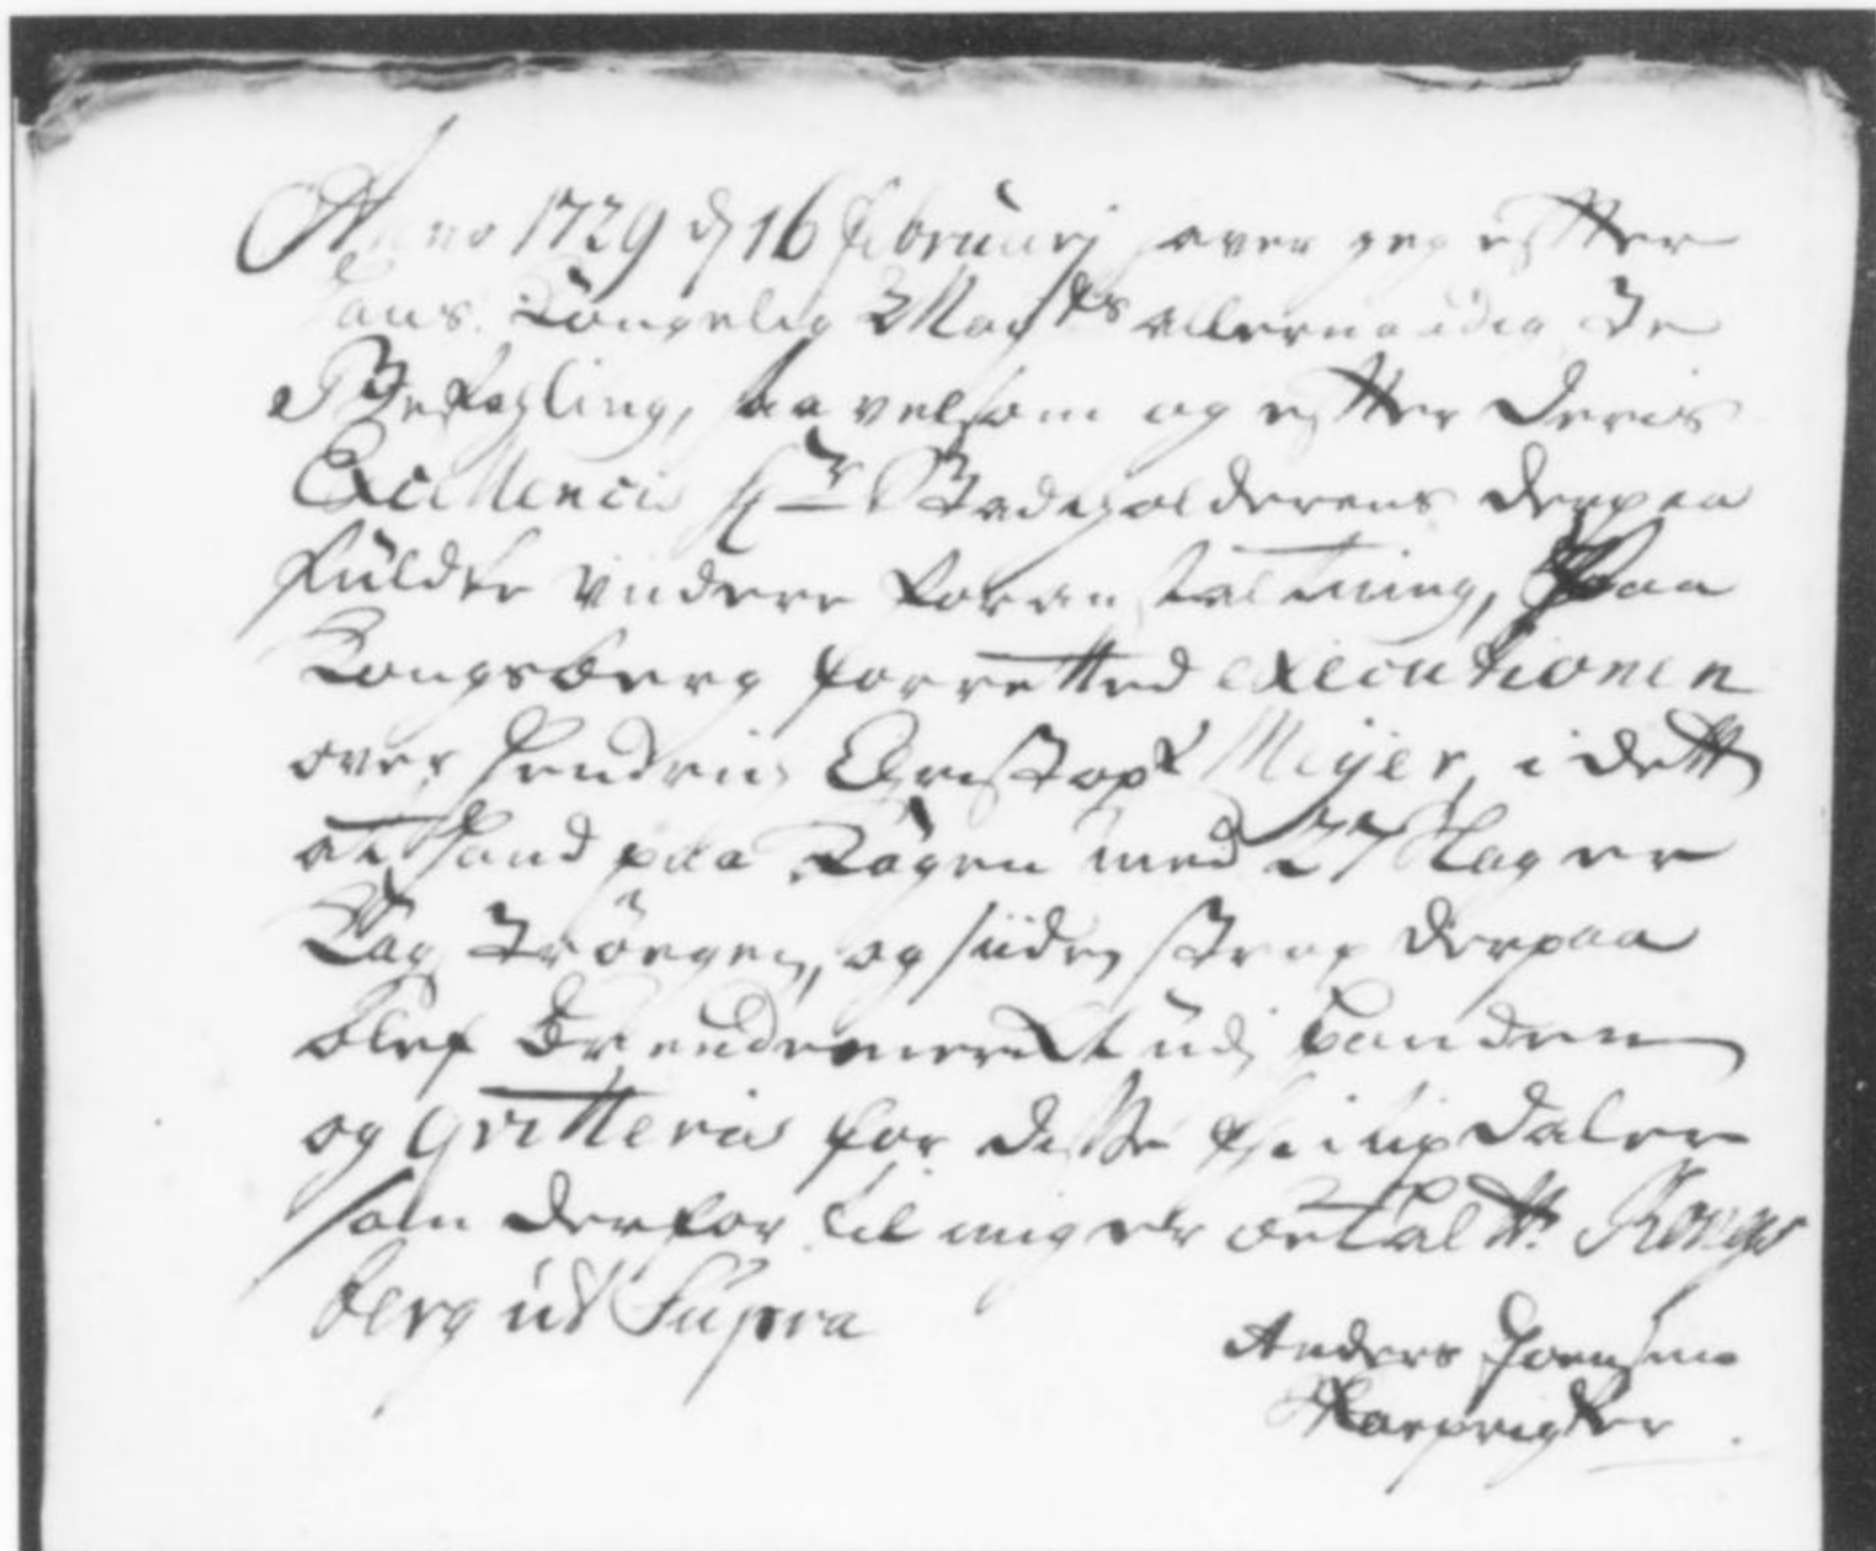 Anno 1729 d 16 februarj haver jeg effter
Hans Kongelig Maysts allernaadigste
Befahling, saavelsom og effter Deris
Excellencis Hr Stadtholderens derpaa
fuldte viidere foranstaltning, Paa
Kongsberg forretted executionen
over Hendrich Christoph Meyer, i dett
at hand paa Kagen med 27 slager
Kag strøgen, og siiden strax derpaa
blef brendemerckt udj Panden
og qvitteris for disse daler
som derfor til mig er betalt. Kongs
berg ut Supra
Anders
Skarprigter